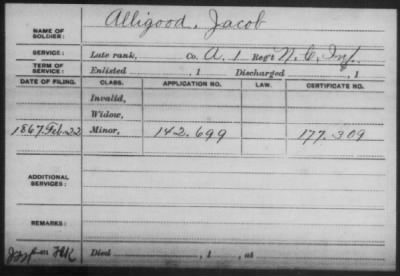 Alligood, Jacob
NAME OF SOLDIER:
SERVICE: Late rank, Co. A. 1 Reg't N. C. Inf.
TERM OF SERVICE: Enlisted , 1 Discharged , 1
DATE OF FILING. CLASS. APPLICATION NO. LAW. CERTIFICATE NO.
Invalid,
Widow,
1867 Feb. 22 Minor, 142.699 177.309
ADDITIONAL SERVICES:
REMARKS:
Died , 1 , at